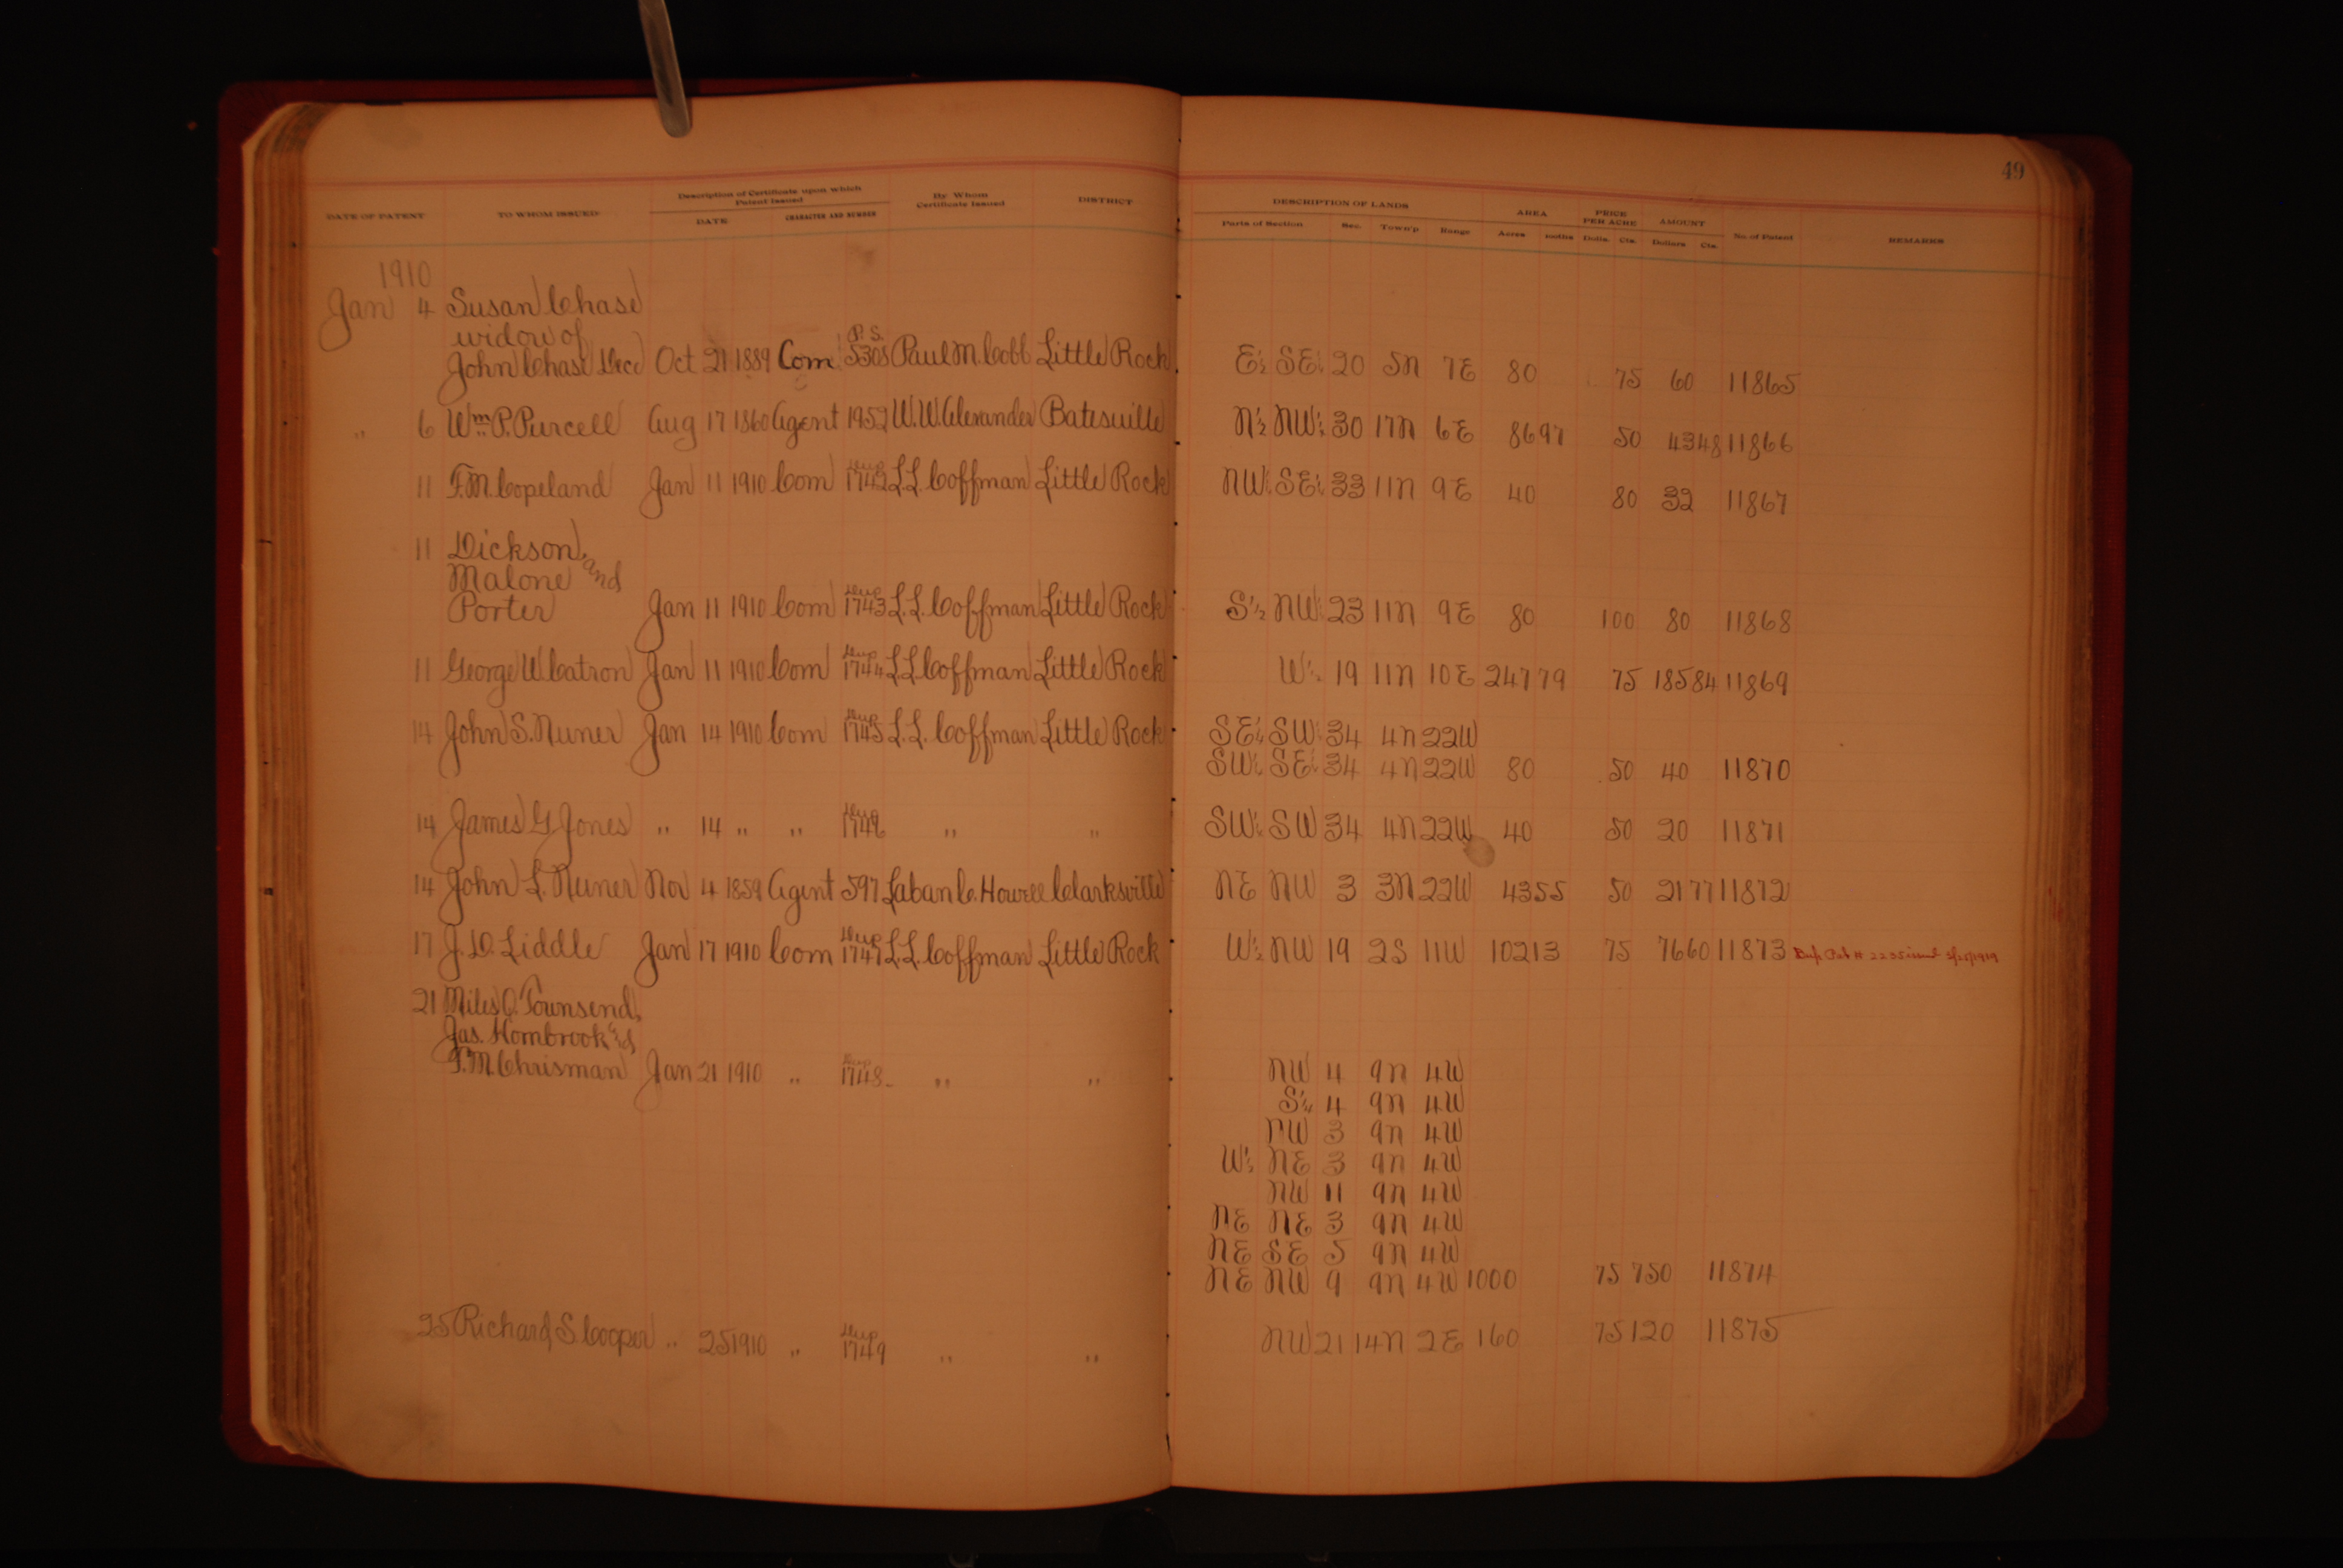 49
DATE OF PATENT TO WHOM ISSUED Description of Certificate upon which Patent Issued DATE CHARACTER AND NUMBER By Whom Certificate Issued DISTRICT DESCRIPTION OF LANDS Parts of Section Sec. Town'p Range AREA Acres 100ths PRICE PER ACRE Dolls. Cts. AMOUNT Dollars Cts. No. of Patent REMARKS
1910
Jan 4 Susan Chase
widow of
John Chase Decd Oct 21 1889 Com P.S. 5308 Paul M. Cobb Little Rock E½ SE¼ 20 5N 7E 80 75 60 11865
" 6 Wm P. Purcell Aug 17 1860 Agent 1952 W.W. Alexander Batesville N½ NW¼ 30 17N 6E 86 97 50 43 48 11866
11 F.M. Copeland Jan 11 1910 Com Dup 1742 L.L. Coffman Little Rock NW¼ SE¼ 33 11N 9E 40 80 32 11867
11 Dickson,
Malone and
Porter Jan 11 1910 Com Dup 1743 L.L. Coffman Little Rock S½ NW¼ 23 11N 9E 80 100 80 11868
11 George W. Catron Jan 11 1910 Com Dup 1744 L.L. Coffman Little Rock W½ 19 11N 10E 247 79 75 185 84 11869
14 John S. Nuner Jan 14 1910 Com Dup 1745 L.L. Coffman Little Rock SE¼ SW¼ 34 4N 22W
SW¼ SE¼ 34 4N 22W 80 50 40 11870
14 James G Jones " 14 " " Dup 1746 " " SW¼ SW 34 4N 22W 40 50 20 11871
14 John L. Nuner Nov 4 1859 Agent 597 Laban C. Howell Clarksville NE NW 3 3N 22W 43 55 50 21 77 11872
17 J.D. Liddle Jan 17 1910 Com Dup 1747 L.L. Coffman Little Rock W½ NW 19 2S 11W 102 13 75 76 60 11873 Dup. Pat # 2235 issued
21 Miles Q. Townsend,
Jas. Hornbrook and
F.M. Chrisman Jan 21 1910 " Dup 1748 " " NW 4 9N 4W
4 9N 4W
NW 3 9N 4W
W½ NE 3 9N 4W
NW 11 9N 4W
NE NE 3 9N 4W
NE SE 5 9N 4W
NE NW 9 9N 4W 1000 75 750 11874
25 Richard S. Cooper " 25 1910 " Dup 1749 " " NW 21 14N 2E 160 75 120 11875